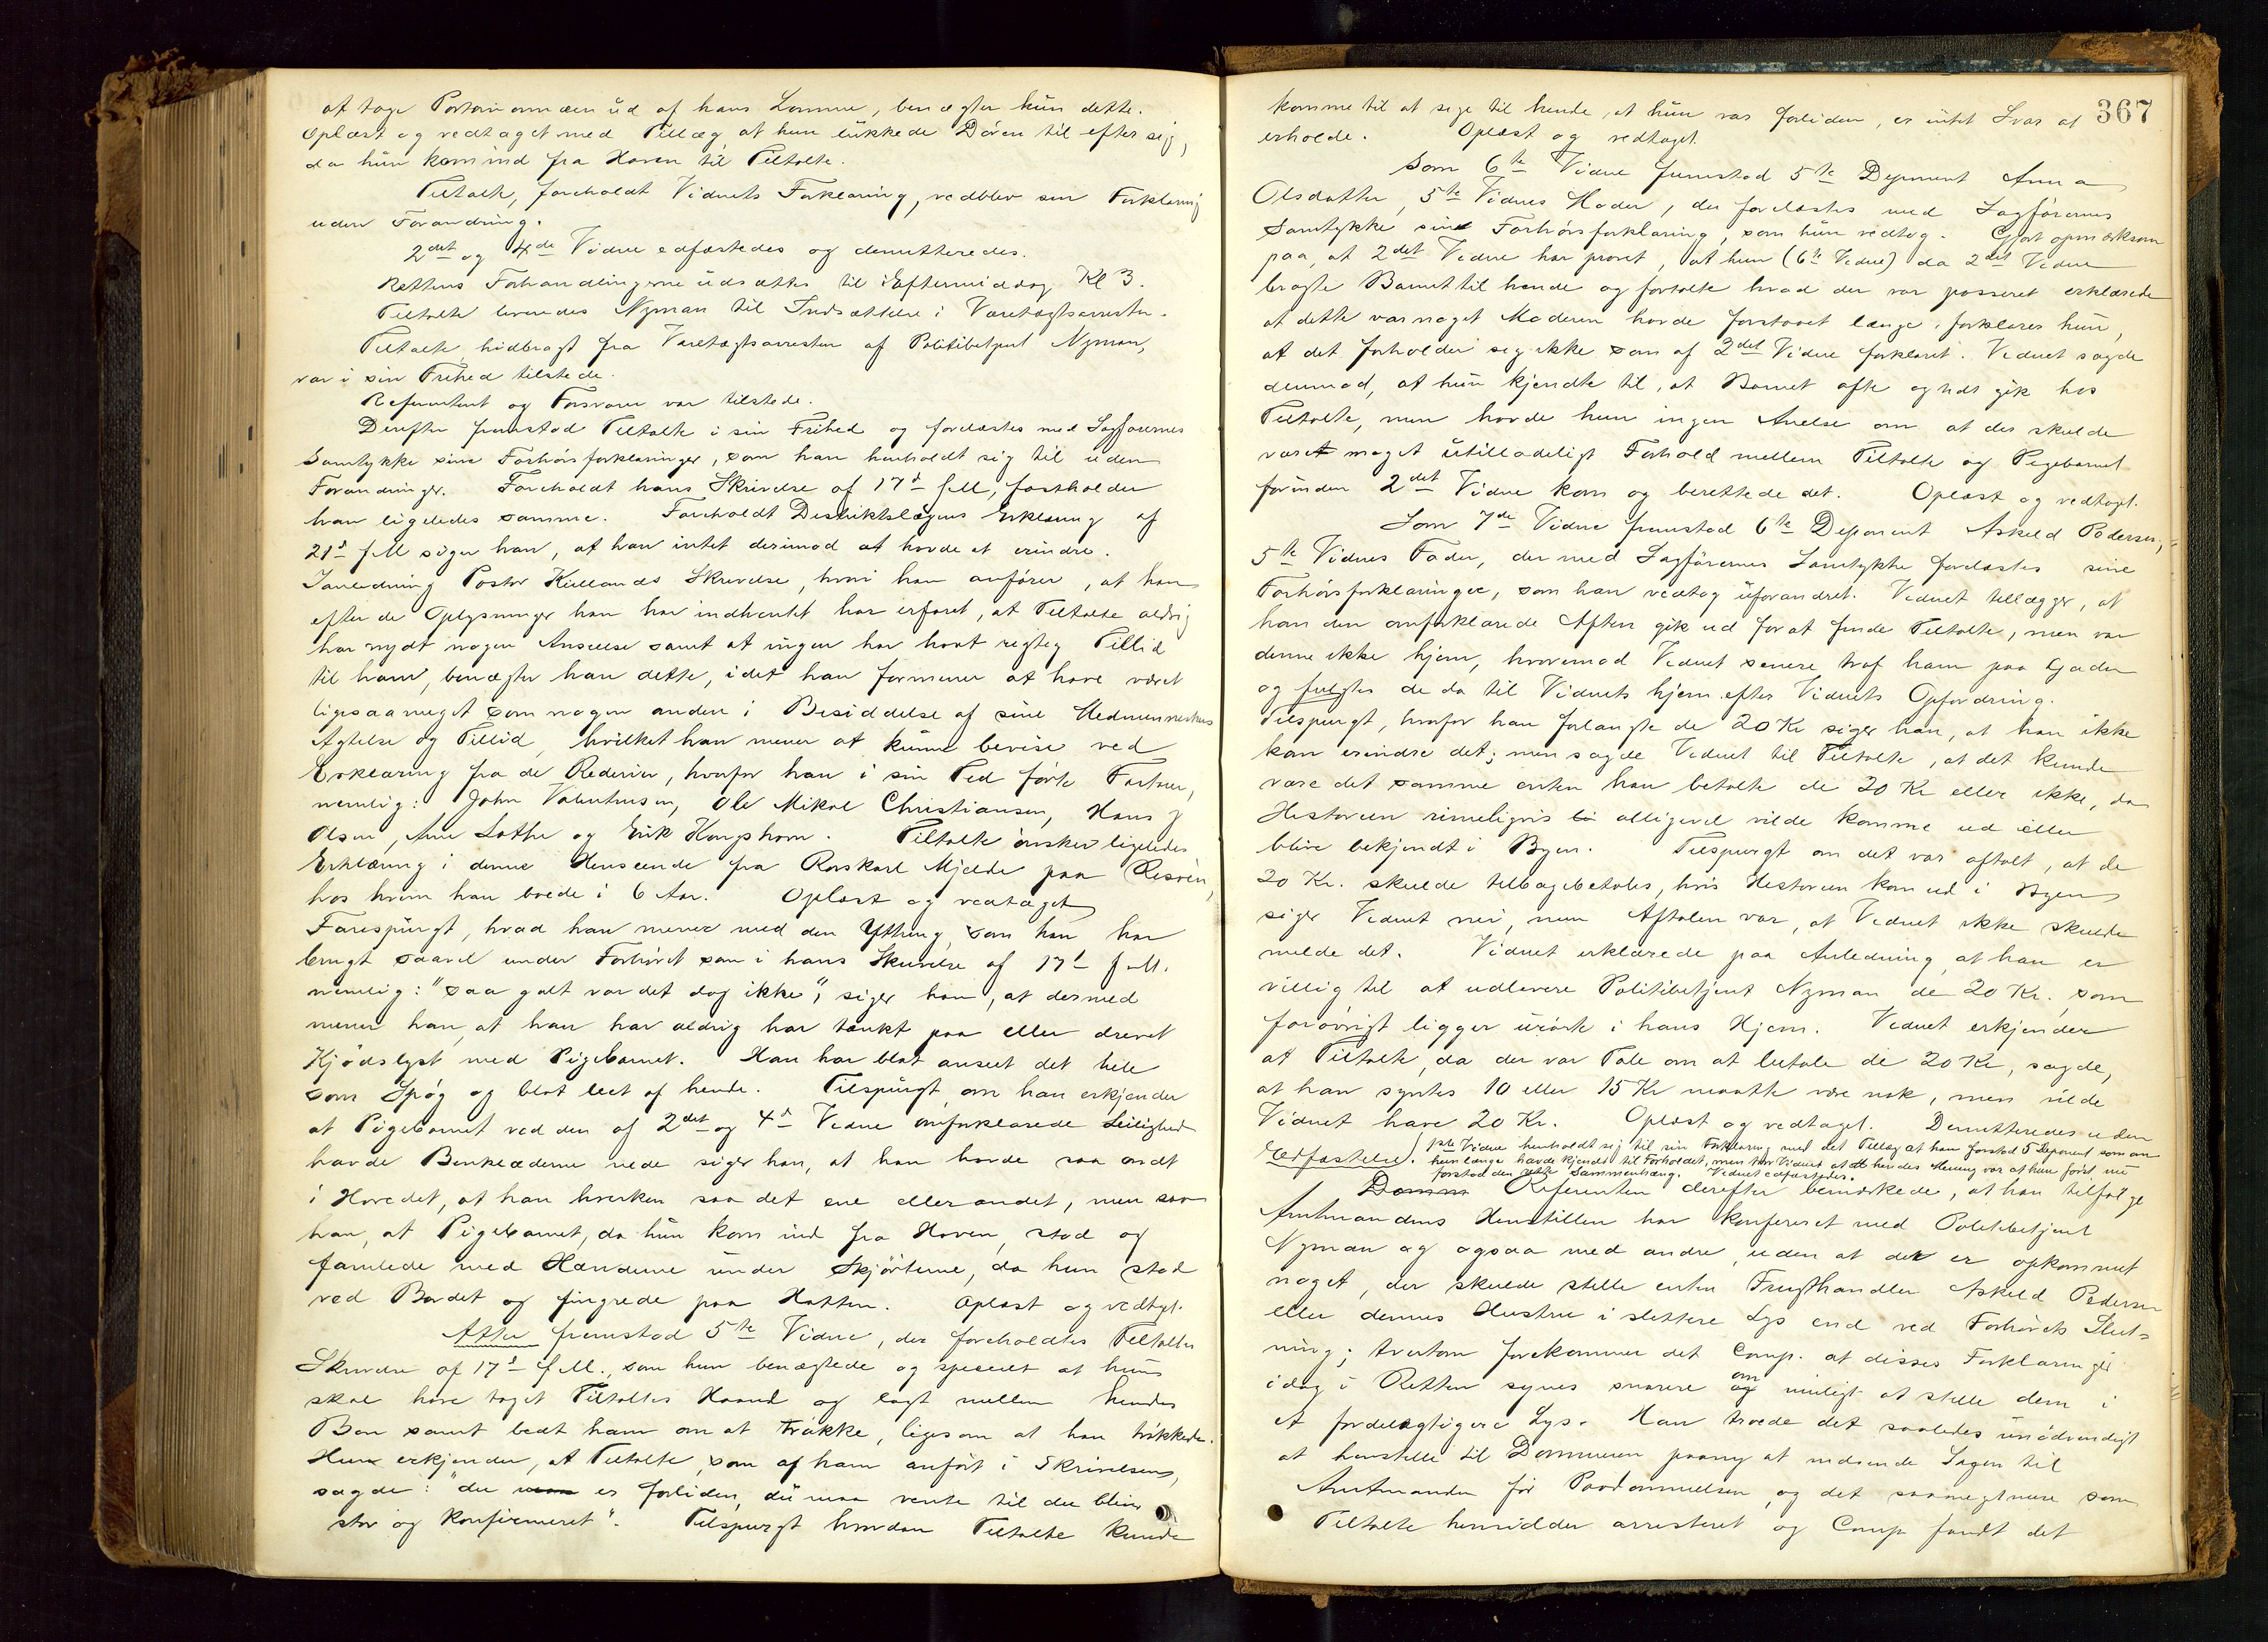 at tage Portemonnæen ud af hans Lomme, benægter hun dette.
Oplæst og vedtaget med Tillæg at hun lukkede Døren til efter sig,
da hun kom ind fra Haven til Tiltalte.
Tiltalte, foreholdt Vidnets Forklaring, vedblev sin Forklaring
uden Forandring.
2det og 4de Vidne edfæstedes og demitteredes.
Rettens Forhandlingerne udsættes til i Eftermiddag Kl 3.
Tiltalte leveredes Nyman til Indsættelse i Varetægtsarresten.
Tiltalte, hidbragt fra Varetægtsarresten af Politibetjent Nyman,
var i sin Frihed tilstede.
Referentent og Forsvarer var tilstede.
Derefter fremstod Tiltalte i sin Frihed og forelæstes med Sagførernes
Samtykke sine Forhørsforklaringer, som han henholdt sig til uden
Forandringer. Foreholdt hans Skrivelse af 17d f.M., fastholder
han ligeledes samme. Foreholdt Distriktslægens Erklæring af
21d f.M siger han, at han intet derimod at havde at erindre.
I anledning Pastor Kiellands Skrivelse, hvori han anfører, at han
efter de Oplysninger han har indhentet har erfaret, at Tiltalte aldrig
har nydt nogen Anseelse samt at ingen har havt rigtig Tillid
til ham, benægter han dette, idet han formener at have været
ligesaameget som nogen anden i Besiddelse af sine Medmenneskers
Agtelse og Tillid, hvilket han mener at kunne bevise ved
Erklæring fra de Rederier, hvorfor han i sin Tid førte Fartøier,
nemlig: John Valentinsen, Ole Mikal Christiansen, Hans J
Olsen, Arne Lothe og Erik Kongshavn. Tiltalte ønsker ligeledes
Erklæring i denne Henseende fra Mjelde paa Risøen,
hos hvem han boede i 6 Aar. Oplæst og vedtaget
Forespurgt, hvad han mener med den Yttring, som han har
brugt saavel under Forhøret som i hans Skrivelse af 17d f.M.
nemlig: "saa galt var det dog ikke", siger han, at dermed
mener han, at han har aldrig har tænkt paa eller drevet
Kjødslyst med Pigebarnet. Han har blot anseet det hele
som Spøg og blot leet af hende. Tilspurgt, om han erkjender
at Pigebarnet ved den af 2det og 4d Vidne omforklarede Leilighed
havde Benklæderne nede siger han, at han havde saa ondt
i Hovedet, at han hverken saa det ene eller andet, men saa
han, at Pigebarnet, da hun kom ind fra Haven, stod og
famlede med Hænderne under Skjørterne, da hun stod
ved Bordet og fingrede paa Hatten. Oplæst og vedtagt.
Atter fremstod 5te Vidne, der foreholdtes Tiltaltes
Skrivelse af 17d f.M., som hun benægtede og specielt at hun
skal have taget Tiltaltes Haand og lagt mellem hendes
Ben samt bedt ham om at trykke, ligesom at han trykkede.
Hun erkjender, at Tiltalte, som af ham anført i Skrivelsen,
sagde: "du er forliden, du maa vente til du bliver
stor og konfirmeret". Tilspurgt hvordan Tiltalte kunde
367
komme til at sige til hende, at hun var forliden, er intet Svar at
erholde. Oplæst og vedtaget.
Som 6te Vidne fremstod 5te Deponent Anna
Olsdatter, 5te Vidnes Moder, der forelæstes med Sagførernes
Samtykke sine Forhørsforklaring, som hun vedtog. Gjort opmærksom
paa, at 2det Vidne har provet, at hun (6te Vidne) da 2det Vidne
bragte Barnet til hende og fortalte hvad der var passeret erklærede
at dette var noget Moderen havde forstaaet længe, forklarer hun,
at det forholder sig ikke som af 2det Vidne forklaret. Vidnet sagde
derimod, at hun kjendte til, at Barnet ofte og tidt gik hos
Tiltalte, men havde hun ingen Anelse om at der skulde
været noget utilladeligt Forhold mellem Tiltalte og Pigebarnet
forinden 2det Vidne kom og berettede det. Oplæst og vedtaget.
Som 7de Vidne fremstod 6te Deponent Askild Pedersen,
5te Vidnes Fader, der med Sagførernes Samtykke forelæstes sine
Forhørsforklaringer, som han vedtog uforandret. Vidnet tillægger, at
han den omforklarede Aften gik ud for at finde Tiltalte, men var
denne ikke hjem, hvorimod Vidnet senere traf ham paa Gaden
og fulgtes de da til Vidnets hjem efter Vidnets Opfordring.
Tilspurgt, hvorfor han forlangte de 20 Kr siger han, at han ikke
kan erindre det; men sagde Vidnet til Tiltalte, at det kunde
være det samme enten han betalte de 20 Kr eller ikke, da
Historien rimeligvis alligevel vilde komme ud eller
blive bekjendt i Byen. Tilspurgt om det var aftalt, at de
20 Kr. skulde tilbagebetales, hvis Historien kom ud i Byen
siger Vidnet nei, men Aftalen var, at Vidnet ikke skulde
melde det. Vidnet erklærede paa Anledning, at han er
villig til at udlevere Politibetjent Nyman de 20 Kr., som
forøvrigt ligger urørte i hans Hjem. Vidnet erkjender
at Tiltalte, da der var Tale om at betale de 20 Kr, sagde,
at han syntes 10 eller 15 Kr maatte være nok, men vilde
Vidnet have 20 Kr. Oplæst og vedtaget. Demitteredes uden
Edfæstelse. 1ste Vidne henholdt sig til sin Forklaring med det Tillæg at han forstod 5 Deponent som om
hun længe havde kjendt til Forholdet, men tror Vidnet at hendes Mening var at hun først nu
forstod den rette Sammenhæng. Vidnet edfæstedes.
Referenten derefter bemærkede, at han tilfølge
Amtmandens Henstillen har konfereret med Politibetjent
Nyman og ogsaa med andre, uden at der er opkommet
noget, der skulde stille enten Frugthandler Askild Pedersen
eller dennes Hustru i slettere Lys end ved Forhørets Slut-
ning; tvertom forekommer det Comp. at disses Forklaringer
idag i Retten synes snarere om muligt at stille dem i
et fordelagtigere Lys. Han troede det saaledes unødvendigt
at henstille til Dommeren paany at indsende Sagen til
Amtmanden før Paadømmelsen, og det saameget mere som
Tiltalte hensidder arresteret og Comp. fandt det